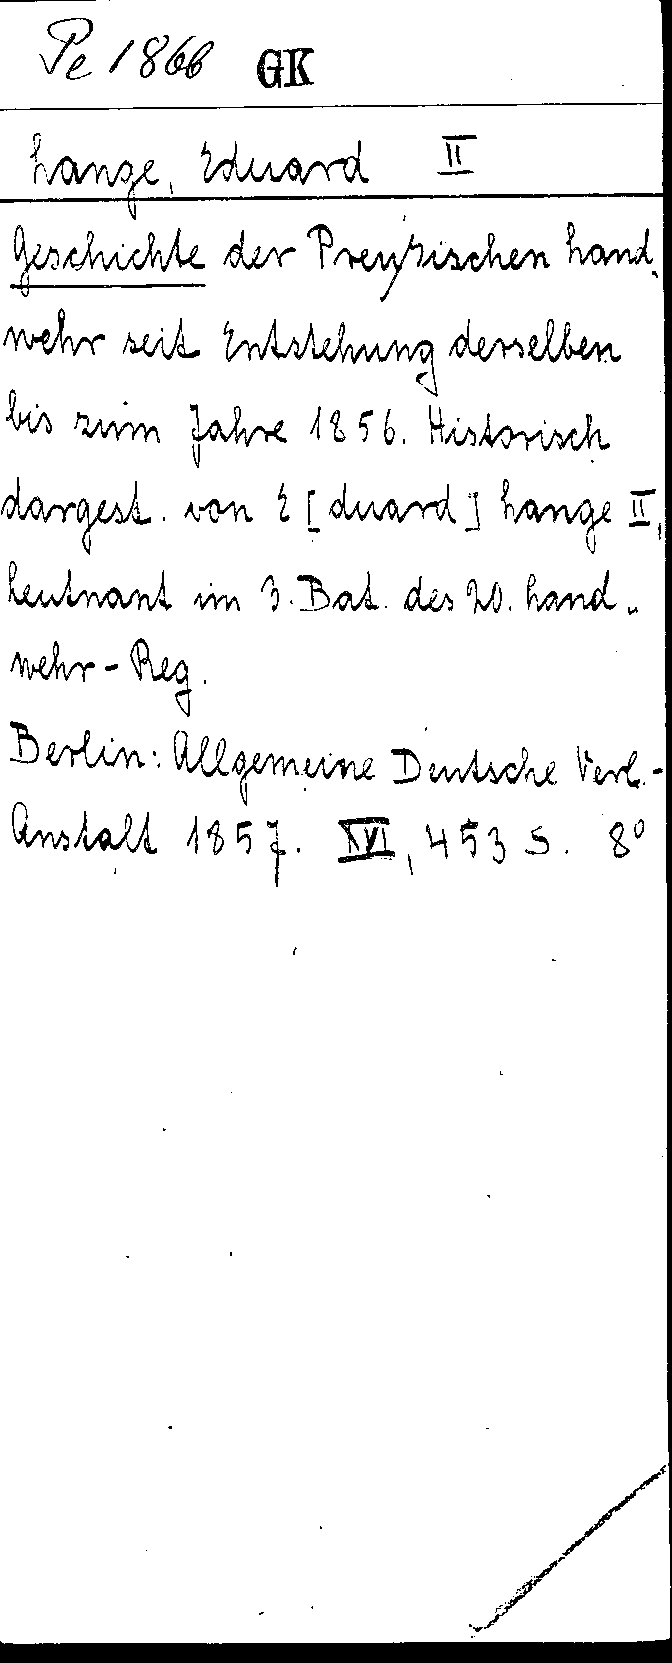 Pe 1866 GK
Lange, Eduard II
Geschichte der Preußischen Land-
wehr seit Entstehung derselben
bis zum Jahre 1856. Historisch
dargest. von E[duard] Lange II,
Leutnant im 3. Bat. des 20. Land-
wehr-Reg.
Berlin: Allgemeine Deutsche Verl.-
Anstalt 1857. XVI, 453 S. 8°